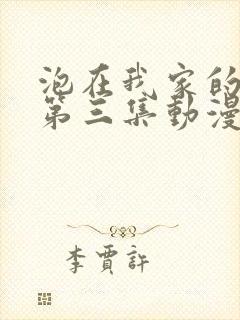 泡在我家的
第三集動漫
李賈許